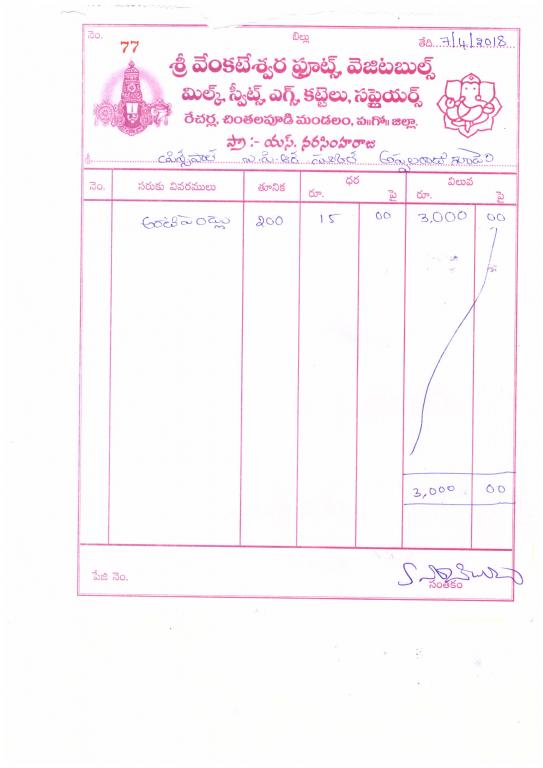 నెం. 77 బిల్లు తేది. 7/4/2018
శ్రీ వేంకటేశ్వర ఫ్రూట్స్, వెజిటబుల్స్
మిల్క్, స్వీట్స్, ఎగ్స్, కట్టెలు, సప్లైయర్స్
రేచర్ల, చింతలపూడి మండలం, ప॥గో॥ జిల్లా.
ప్రొ :- యస్. నరసింహరాజు
శ్రీ ప్రిన్సిపాల్ ఎ.పి.ఆర్
నెం. సరుకు వివరములు తూనిక ధర విలువ
రూ. పై రూ. పై
అరటిపండ్లు 200 15 00 3,000 00
3,000 00
పేజి నెం. సంతకం